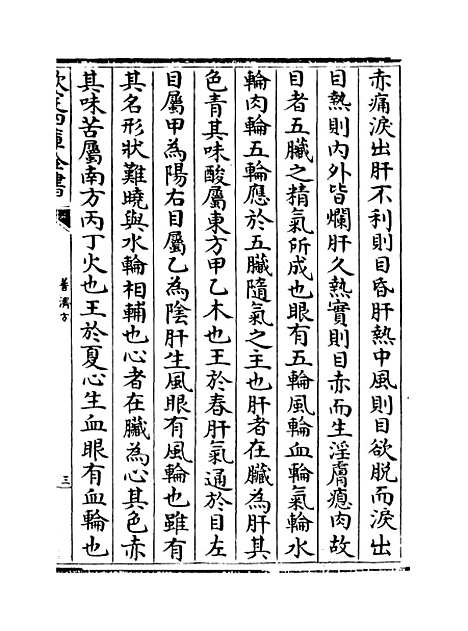 赤痛淚出肝不利則目昏肝熱中風則目欲脫而淚出
目熱則内外皆爛肝久熱實則目赤而生淫膚瘜肉故
目者五臟之精氣所成也眼有五輪風輪血輪氣輪水
輪肉輪五輪應於五臟隨氣之主也肝者在臟為肝其
色青其味酸屬東方甲乙木也王於春肝氣通於目左
目屬甲為陽右目屬乙為陰肝生風眼有風輪也雖有
其名形狀難曉與水輪相輔也心者在臟為心其色赤
其味苦屬南方丙丁火也王於夏心生血眼有血輪也
欽定四庫全書
普濟方
三